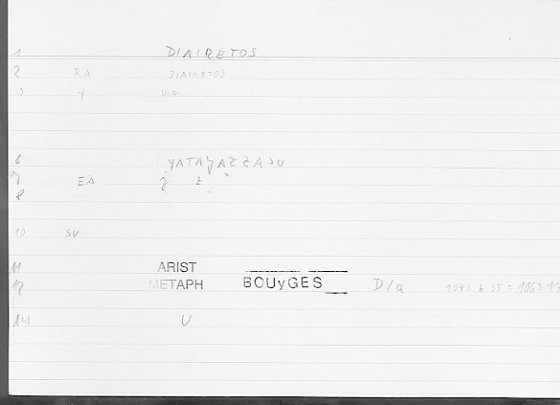 1 DIAIRETOS
2 RA DIAIRETOS
3 y DIA
6 yATAyAZZAJU
7 EA z
8
10 SU
11 ARIST
12 METAPH BOUyGES D/a
14 U